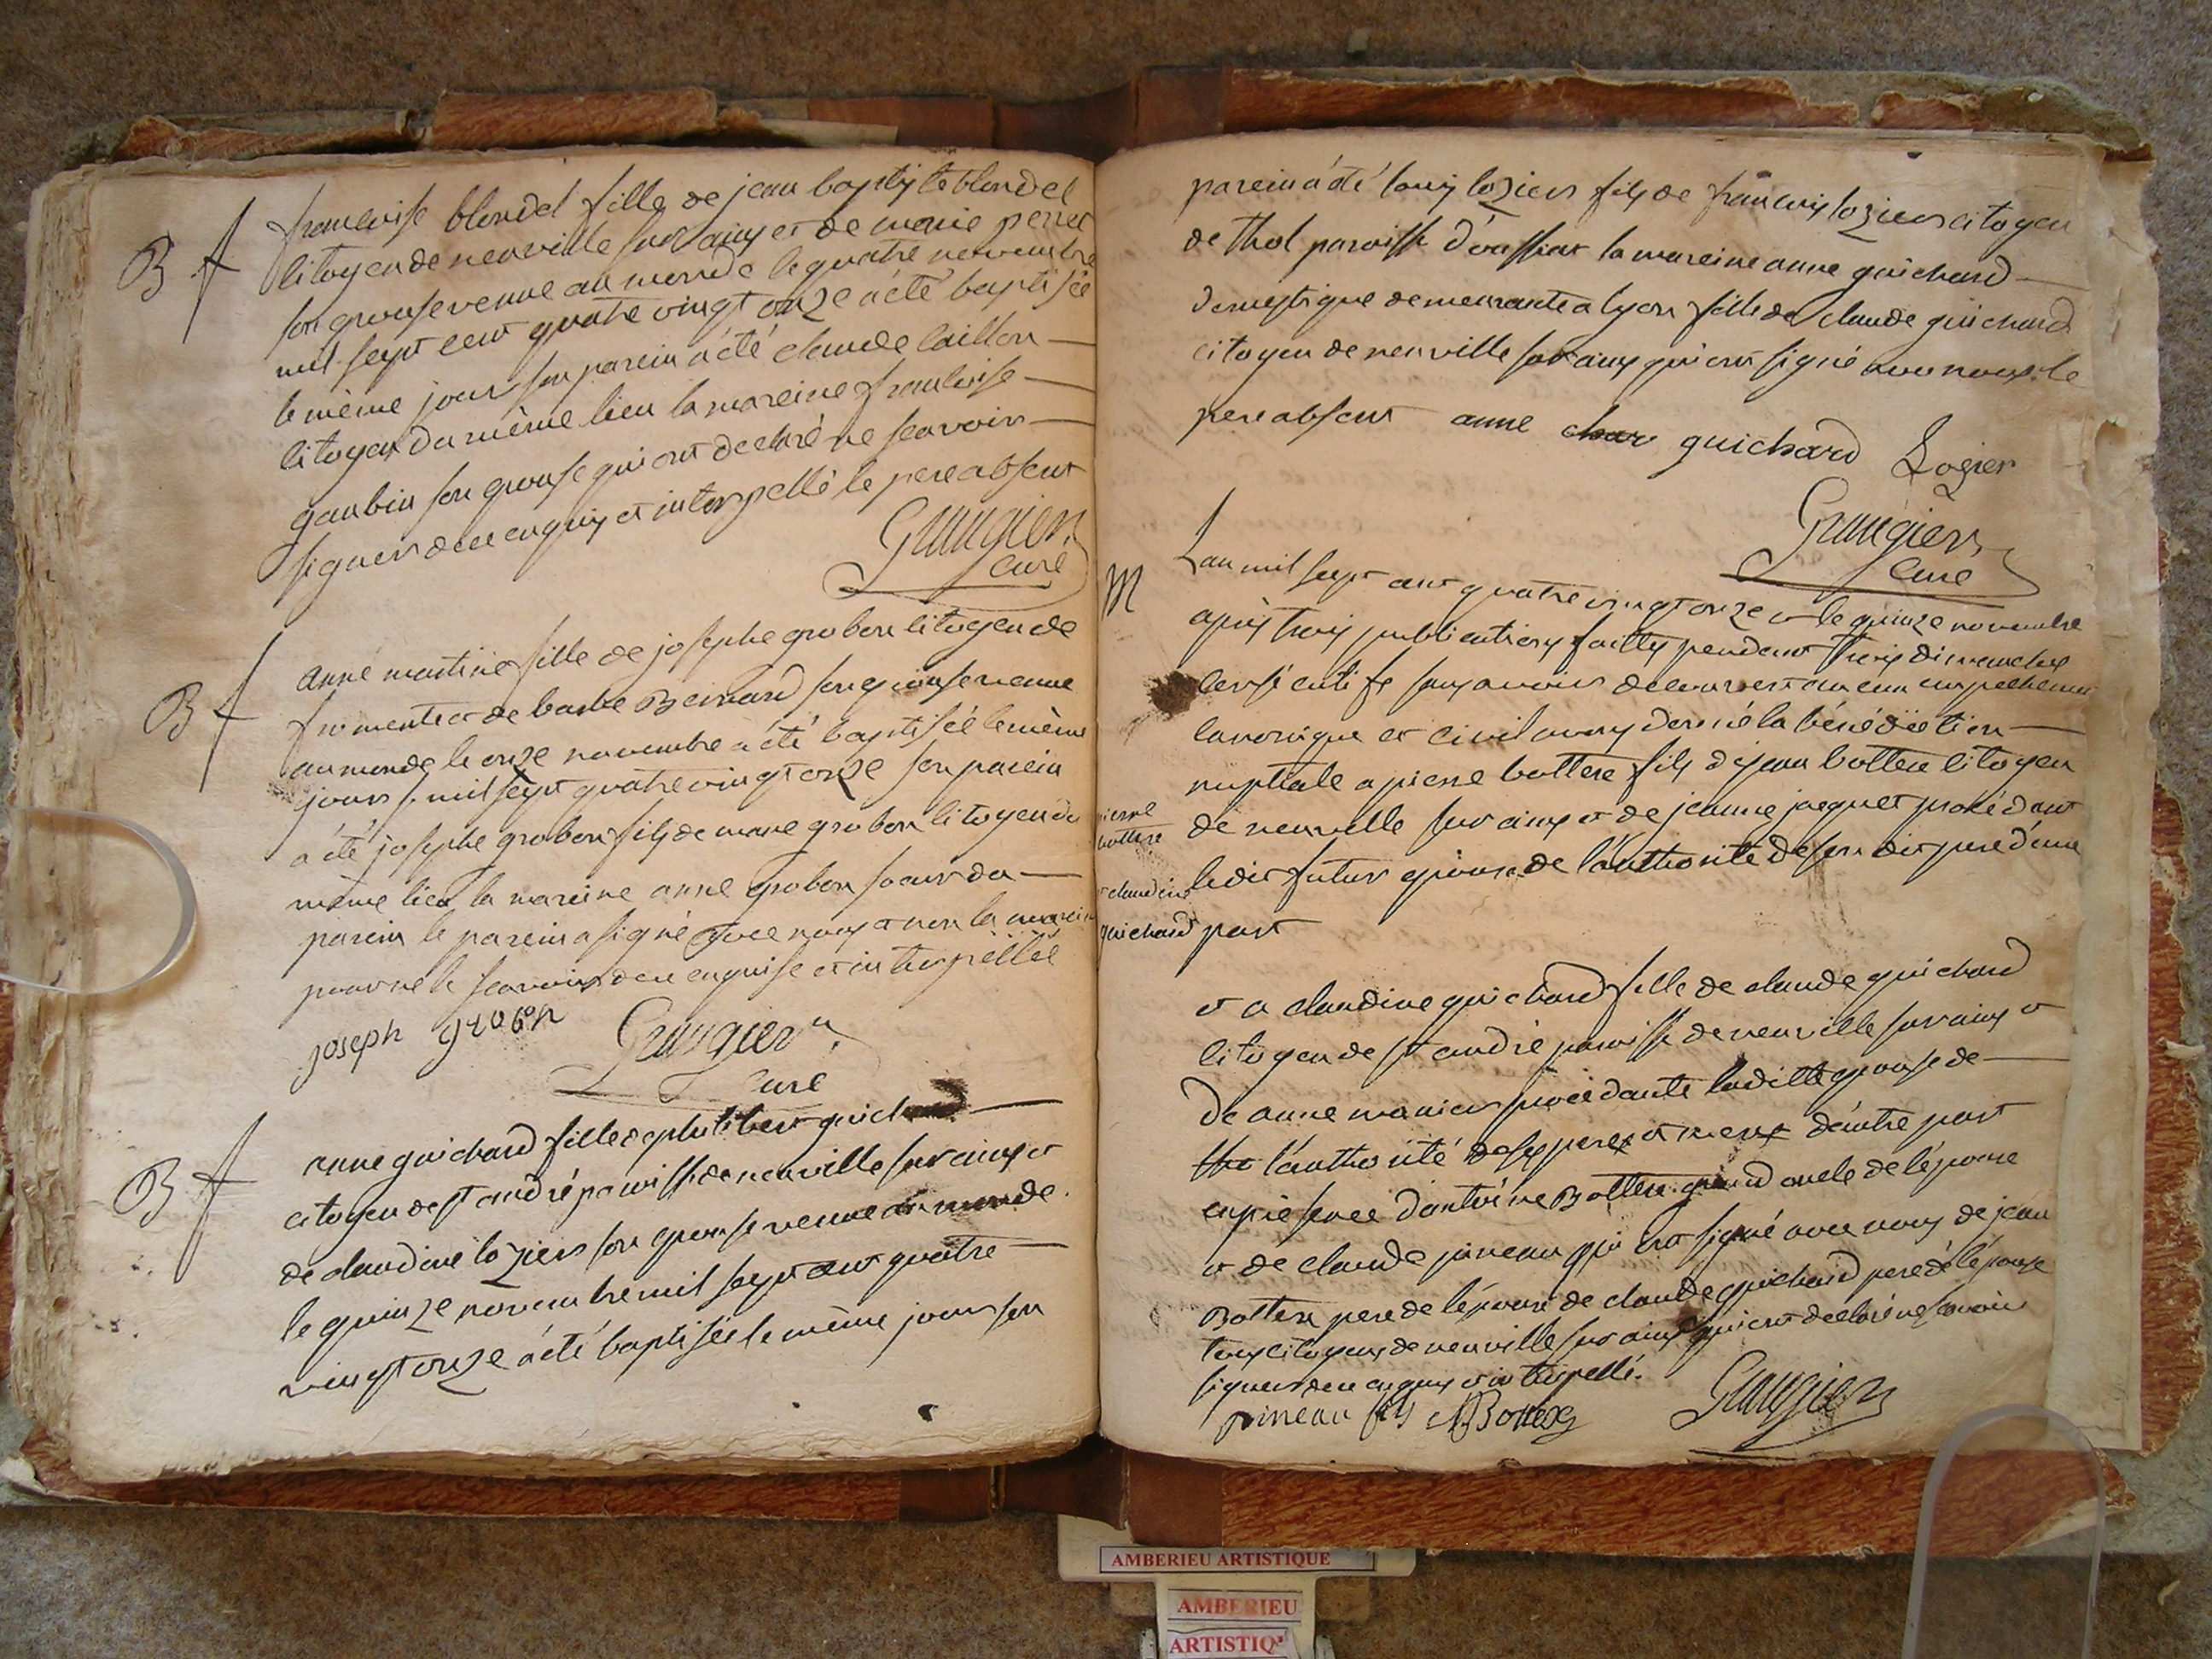 B f
francoise blondel fille de jean baptiste blondel
citoyen de neuville sur ainx et de marie perret
son epouse venue au monde le quatre novembre
mil sept cent quatre vingt onze a été baptisée
le même jour son parein a été claude caillon
citoyen du même lieu la mareine francoise
gaubin son epouse qui ont declaré ne scavoir
signer de ce enquis et interpellé le pere absent
Grangier
curé
B f
anne martine fille de josephe grobon citoyen de
fromente et de barbe Bernard son epouse venue
au monde le onze novembre a été baptisée le même
jour mil sept quatre vingt onze son parein
a été josephe grobon fils de marie grobon citoyen du
même lieu la mareine anne grobon soeur du
parein le parein a signé avec nous et non la mareine
pour ne le scavoir de ce enquise et interpellée
joseph grobon
Grangier
curé
B f
anne guichard fille de philibert guichard
citoyen de st andré paroisse de neuville sur ainx et
de claudine loziers son epouse venue au monde
le quinze novembre mil sept cent quatre
vingt onze a été baptisée le même jour son
parein a été louis loziers fils de francois loziers citoyen
de thol paroisse d'oussiat la mareine anne guichard
domestique demeurante a lyon fille de claude guichard
citoyen de neuville sur ainx qui ont signé avec nous le
pere absent anne guichard Logier
Grangier
curé
M
L'an mil sept cent quatre vingt onze et le quinze novembre
après trois publications faittes pendant trois dimanches
consécutifs sans avoir decouvert aucun empechement
canonique et civil avons donné la bénédiction
nuptiale a pierre bottere fils de jean bottere citoyen
pierre
bottere
de neuville sur ainx et de jeanne jaquet procédant
ledit futur epoux de l'authorité de son dit pere d'une
et claudine
guichard
part
et a claudine guichard fille de claude guichard
citoyen de st andré paroisse de neuville sur ainx et
de anne manier procédante laditte epouse de
l'authorité de ses pere et mere d'autre part
en présence d'antoine Bottere grand oncle de l'épouse
et de claude pineau qui ont signé avec nous de jean
Bottere pere de l'époux de claude guichard pere de l'épouse
tous citoyens de neuville sur ainx qui ont declaré ne scavoir
signer de ce enquis et interpellé.
pineau fils A Bottex
Grangier
AMBERIEU ARTISTIQUE
AMBERIEU
ARTISTIQ